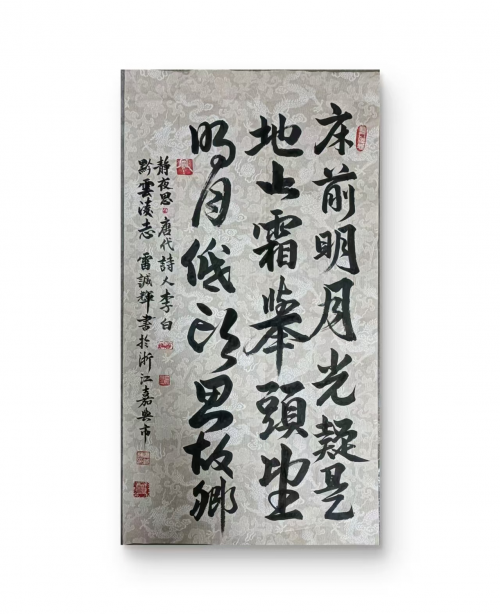 床前明月光疑是
地上霜举頭望
明月低頭思故鄉
靜夜思 唐代詩人李白
黔雲凌志 雷誠輝書於浙江嘉興市